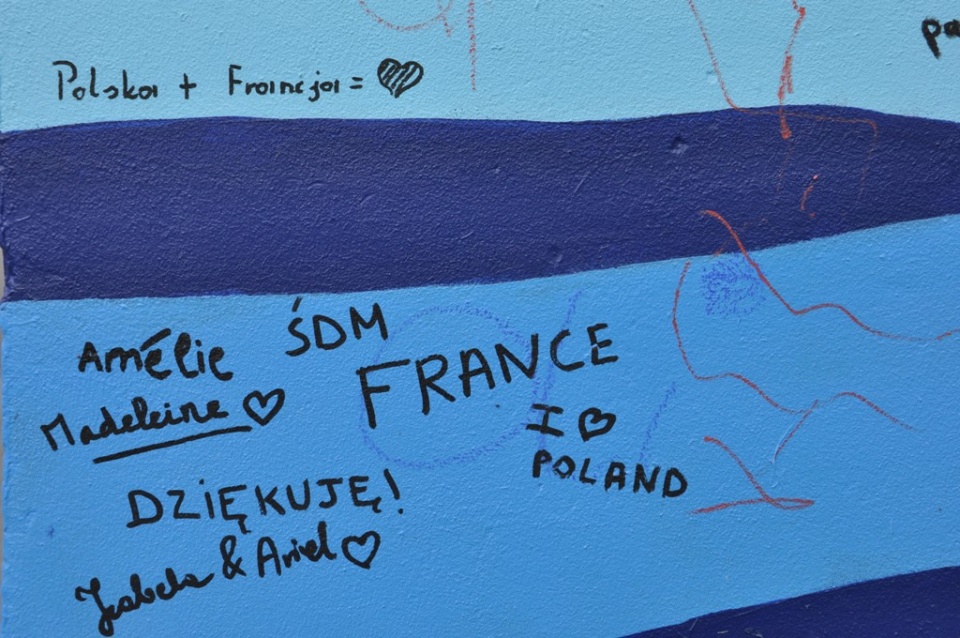 Polska + Francja = ♥
Amélie
ŚDM
FRANCE
Madeleine ♡
I ♡
POLAND
DZIĘKUJĘ!
& Ariel ♡